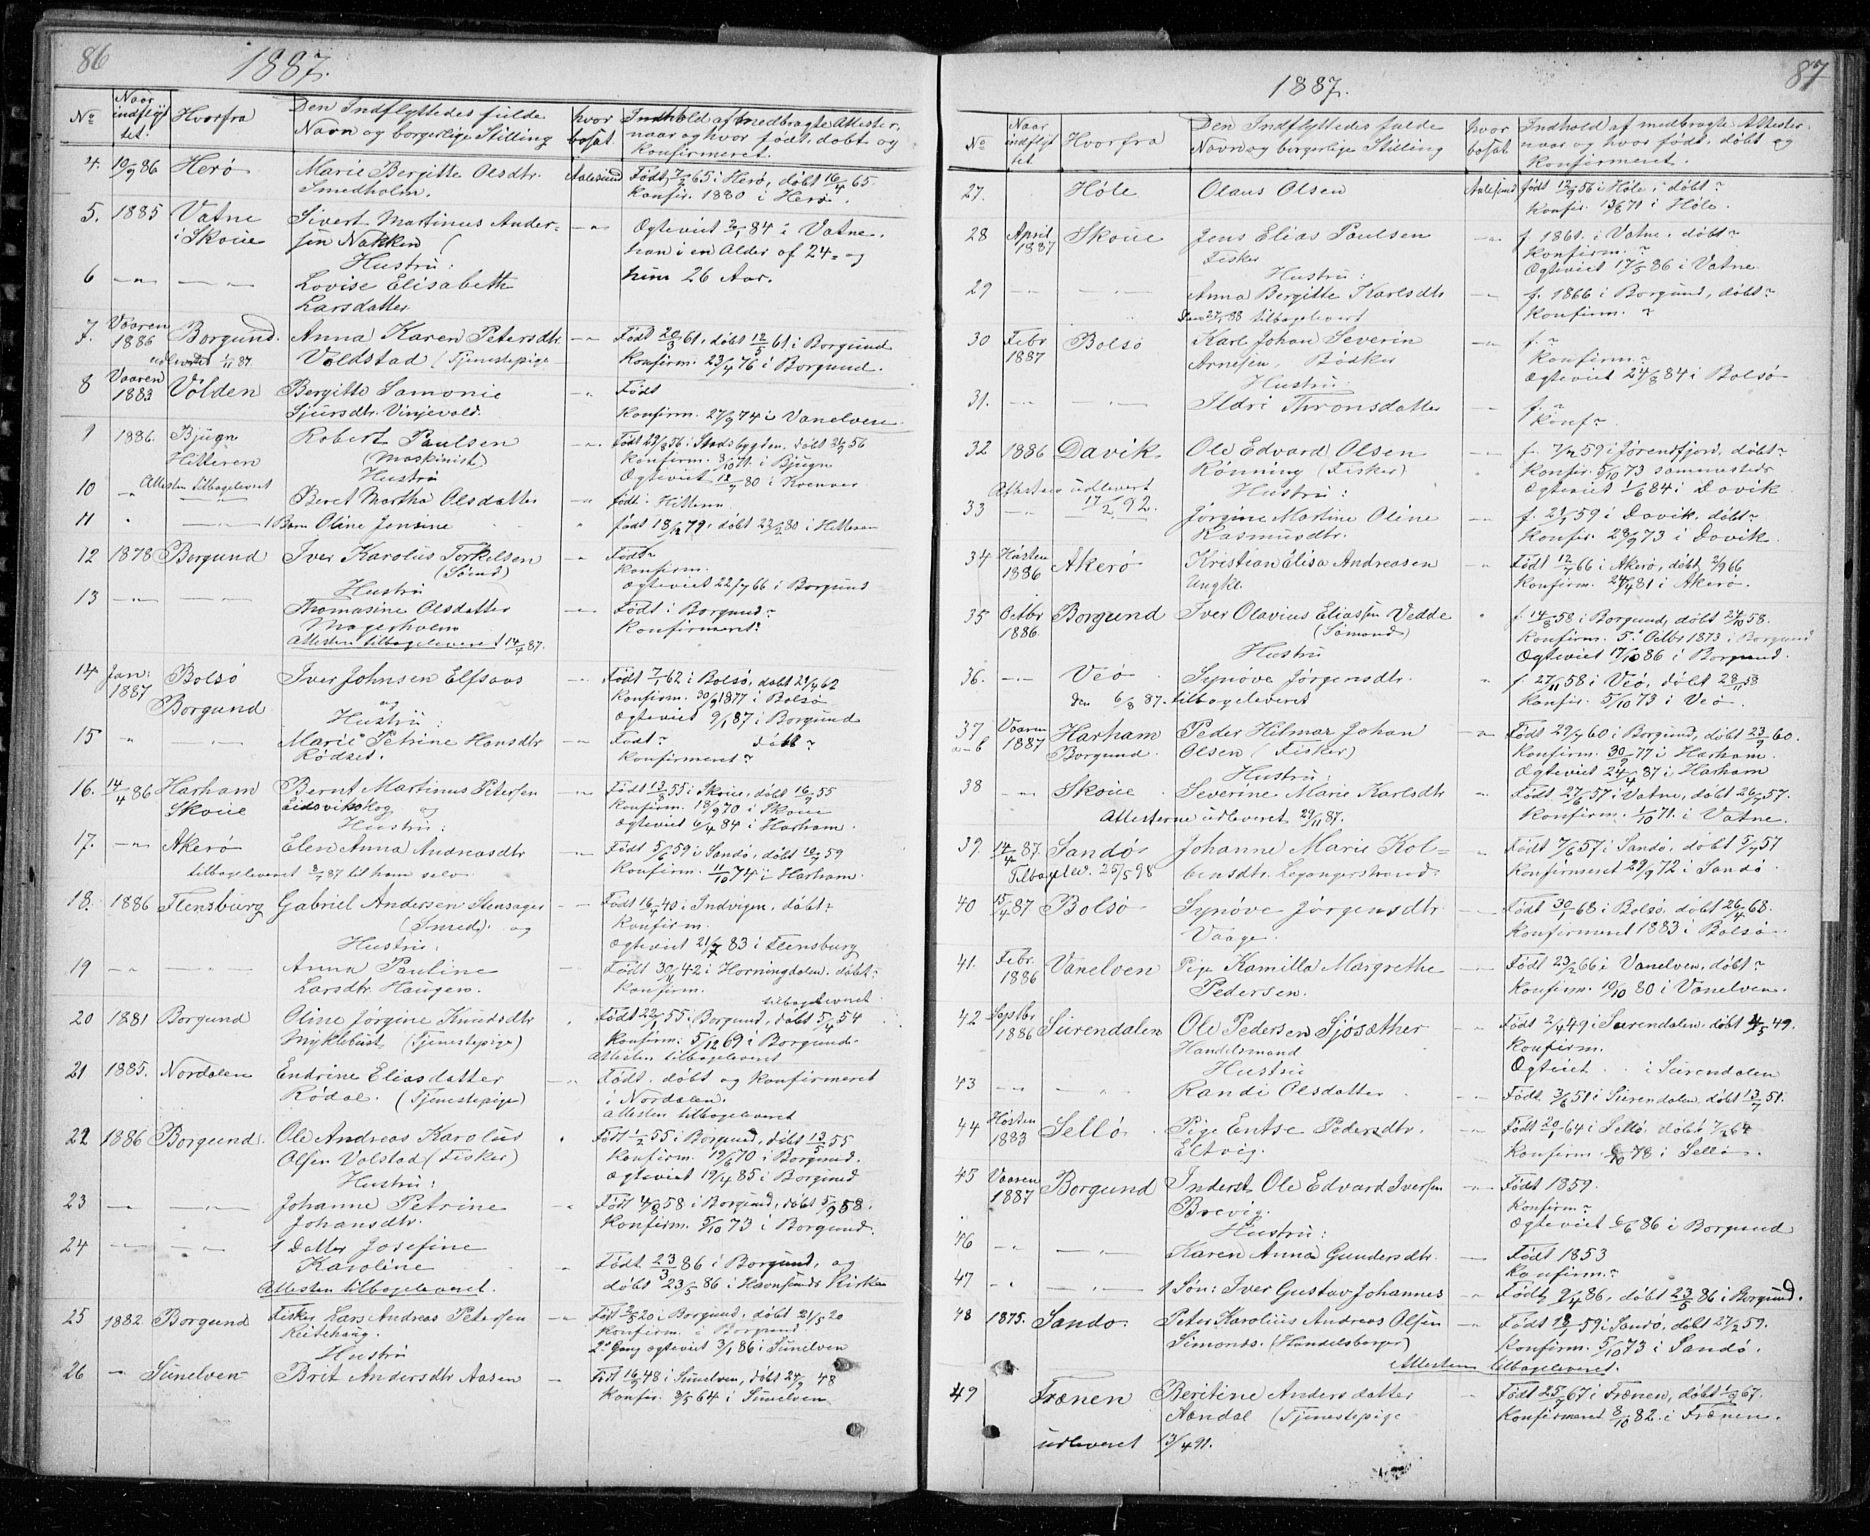 86
1887.
No
Naar indflyttet
Hvorfra
Den Indflyttedes fulde Navn og borgerlige Stilling
hvor bosat
Indhold af medbragte Attester, naar og hvor født, døbt og Konfirmeret.
4. 19/9 86 Herø Marie Bergitte Olsdtr. Aalesund Født 7/2 65 i Herø, døbt 16/4 65.
Smedholm. Konfir. 1880 i Herø.
5. 1885 Vatne Sivert Martinus Ander- Ogteviet 2/1 84 i Vatne,
i Skoue sen Nakken han i en Alder af 24 og
Hustru: hun 26 Aar.
6 Lovise Elisabeth
Larsdatter
7. Vaaren 1886 Borgund. Anna Karen Petersdtr Født 20/3 61, døbt 12/5 61 i Borgund
udleveret 1/11 87. Voldstad (Tjenestepige Konfirm. 23/4 76 i Borgund.
8 Vaaren 1883 Volden Bergitte Samonie Født
Sjursdtr. Vinjevold. Konfirm. 27/9 74 i Vanelven.
9 1886. Bjugn Robert Paulsen Født 29/8 56 i Stadsbygden, døbt 21/9 56
Hitteren (Maskinist) Konfirm. 8/10 71. i Bjugn
Hustru Ogteviet 12/9 80 i Kvenvær
Attesten tilbageleveret
10 Beret Martha Olsdatter født i Hitteren
11 1 Barn Oline Jensine født 18/12 79, døbt 23/5 80 i Hitteren
12 1878 Borgund Iver Karolus Torkelsen Født
(Smed) Konfirm.
Hustru Ogteviet 22/7 66 i Borgund
13 Thomasine Olsdatter Født i Borgund
Magerholm Konfirmeret?
Attesten tilbageleveret 14/7 87.
14. Jan: 1887 Bolsø Iver Johnsen Elfsaas Født 7/1 62 i Bolsø, døbt 21/4 62
Borgund og Konfirm. 30/9 1877 i Bolsø
Hustru: Ogteviet 9/1 87 i Borgund
15 Marie Petrine Hansdtr Født? Døbt?
Rødset. Konfirmeret?
16. 14/4 86 Harham Bernt Martinus Petersen Født 13/8 55 i Skoue, døbt 16/9 55
Skoue Eidsvikskog og Konfirm. 18/9 70 i Skoue
Hustru: Ogteviet 6/4 84 i Harham.
17. Akerø Elen Anna Andreasdtr Født 5/6 59 i Sandø, døbt 10/7 59
tilbageleveret 3/7 87 til ham selv. Konfirm. 11/10 74 i Harham.
18. 1886 Flensburg Gabriel Andersen Stensager Født 16/4 40 i Indvigen, døbt
(Smed). og Konfirm.
Hustru: Ogteviet 21/7 83 i Flensburg
19 Anna Pauline Født 30/11 42 i Horningdalen, døbt
Larsdtr. Haugen. Konfirm.
tilbageleveret
20 1881 Borgund Oline Jørgine Knudsdtr Født 22/1 55. Borgund, døbt 5/4 54
Myklebust (Tjenestepige) Konfirm: 5/12 69 i Borgund.
Attesten tilbageleveret
21 1885. Nordalen Endrine Eliasdatter Født, døbt og Konfirmeret
Rødal. (Tjenestepige) i Nordalen.
Attesten tilbageleveret
22 1886 Borgund. Ole Andreas Karolus Født 1/2 55 i Borgund, døbt 13/5 55
Olsen Volstad (Fisker) Konfirm. 19/6 70 i Borgund.
Hustru: Ogteviet 19/4 85 i Borgund
23 Johanne Petrine Født 4/8 58 i Borgund, døbt 5/9 58.
Johansdtr. Konfirm. 5/10 73 i Borgund.
24 1 Datter Josefine
Karoline Født 23/3 86 i Borgund, og
Attesten tilbageleveret. døbt 23/5 86 i Havnsunds Kirke
25 1882. Borgund Fisker Lars Andreas Petersen Født 2/5 20 i Borgund, døbt 21/5 20
Reitehaug. Konfirm. i Borgund
Hustru 2d Gang ogteviet 3/1 86 i Sunelven
26 Sunelven Brit Andersdtr Aasen Født 16/9 48 i Sunelven, døbt 24/9 48
Konfir. 8/5 64 i Sunelven
87
1887.
No
Naar indflyttet
Hvorfra
Den Indflyttedes fulde Navn og borgerlige Stilling
hvor bosat
Indhold af medbragte Attester. naar og hvor født, døbt og Konfirmeret.
27. Høle Olaus Olsen Aalesund født 12/9 56 i Høle, døbt
Konfir. 13/8 71 i Høle.
28 April 1887 Skoue Jens Elias Paulsen f. 1861. i Vatne, døbt
Fisker Konfirm.
Hustru: Ogteviet 17/5 86 i Vatne
29 Anna Bergitte Karlsdtr f. 1866 i Borgund, døbt
Den 27/4 88 tilbageleveret Konfirm.
30 Febr 1887 Bolsø Karl Johan Severin f.
Arnesen, Bødker Konfirm.
Hustru: Ogteviet 24/8 84 i Bolsø
31. Ildri Thronsdatter f.
Konf
32 1886 Davik Ole Edvard Olsen f. 7/12 59 i Jørendfjord, døbt
Rønning (Fisker) Konfir. 5/10 73 sammesteds
Attesten udlevert 17/2 92. Hustru: Ogteviet 1/6 84 i Davik
33 Jørgine Martine Oline f. 21/1 59 i Davik, døbt
Rasmusdtr. Konfir. 28/9 73 i Davik.
34 Høsten 1886 Akerø Kristian Elisa Andreasen Født 12/7 66 i Akerø, døbt 2/9 66
Ungkl. Konfirm. 24/4 81 i Akerø.
35 Octbr 1886 Borgund Iver Olavius Eliassen Vedde f. 14/8 58 i Borgund, døbt 24/10 58.
(Sømand) Konfirm. 5. Octbr 1873 i Borgund
Hustru Ogteviet 17/10 86 i Borgund.
36. Veø Synøve Jørgensdtr. f. 27/11 58 i Veø, døbt 28/11 58
den 6/8 87. tilbageleveret Konfir. 5/10 73 i Veø.
37 Vaaren 1887 Harham Peder Hilmar Johan Født 29/7 60 i Borgund, døbt 23/9 60.
Borgund. Olsen (Fisker) Konfirm. 30/9 77 i Harham.
Hustru: Ogteviet 24/4 87 i Harham
38 Skoue Severine Marie Karlsdtr Født 27/6 57 i Vatne, døbt 26/7 57.
Attesterne udleveret 29/11 87. Konfirm. 1/10 71. i Vatne.
39. 14/4 87 Sandø Johanne Marie Kol- Født 7/6 57 i Sandø, døbt 5/7 57
Tilbagelev. 25/5 98 bensdtr. Legangerstrand. Konfirmeret 29/9 72 i Sandø.
40 15/4 87 Bolsø Synøve Jørgensdtr. Født 30/1 68 i Bolsø, døbt 26/4 68.
Vaage. Konfirmeret 1883 i Bolsø.
41. Febr. 1886 Vanelven Pige Kamilla Margrethe Født 23/2 66 i Vanelven, døbt
Pedersen. Konfirm. 19/10 80 i Vanelven.
42 Septbr 1886 Surendalen Ole Pedersen Sjøsæther Født 2/4 49 i Surendalen, døbt 4/5 49.
Handelsmand Konfirm.
Hustru Ogteviet i Surendalen
43 Randi Olsdatter Født 3/6 51 i Surendalen, døbt 13/7 51.
44 Høsten 1883 Sellø Pige Entse Pedersdtr. Født 20/1 64 i Sellø, døbt 7/2 64
Eltvig. Konfirm. 6/10 78 i Sellø.
45 Vaaren 1887 Borgund Inderst Ole Edvard Iversen Født 1859.
Brevig. Konfirm.
Hustru: Ogteviet 6/6 86 i Borgund
46 Karen Anna Gundersdtr. Født 1853
Konfirm.
47 1 Søn: Iver Gustav Johannes Født 9/4 86, døbt 23/5 86 i Borgund.
48 1875. Sandø. Peter Karolius Andreas Olsen Født 18/1 59 i Sandø, døbt 27/2 59.
Simones. (Handelsborger) Konfirm. 5/10 73 i Sandø.
Attesten tilbageleveret.
49 Frænen Beritine Andersdatter Født 25/7 67 i Frænen, døbt 1/9 67.
Aandal (Tjenestepige Konfirmeret 8/10 82. i Frænen.
udleveret 13/4 91.